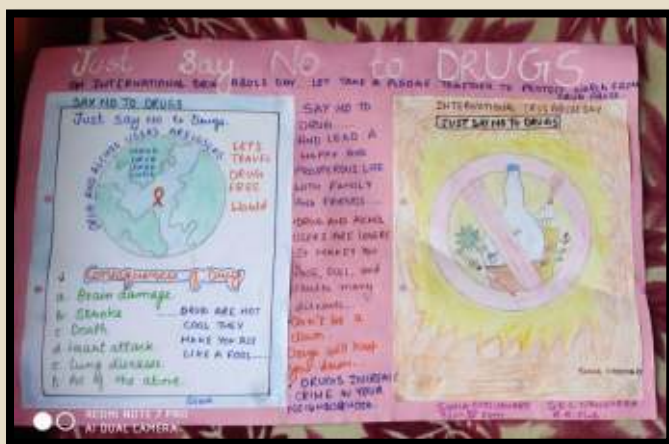 Just Say NO to DRUGS
ON INTERNATIONAL DRUG ABUSE DAY. LET TAKE A PLEDGE TOGETHER TO PROTECT WORLD FROM
DRUG ABUSE
SAY NO TO DRUGS
Just Say No to Drugs.
DRUG AND ALCOHOL USERS ARE LOSERS
LETS
TRAVEL
DRUG
FREE
World
Consequences of Drugs
a. Brain damage
b. Stroke
c. Death
d. Heart attack
e. Lung diseases
f. All of the above
DRUG ARE NOT
COOL THEY
MAKE YOU ACT
LIKE A FOOL
SAY NO TO
DRUG
AND LEAD A
HAPPY AND
PROSPEROUS LIFE
WITH FAMILY
AND FRIENDS
DRUG AND
USERS ARE LOSERS
IT MAKES YOU
DULL, and
many
diseases
Don't be a
clown
Drugs will keep
you down
DRUGS INCREASE
CRIME IN YOUR
NEIGHBORHOOD
INTERNATIONAL DRUG ABUSE DAY
JUST SAY NO TO DRUGS
REDMI NOTE 7 PRO
AI DUAL CAMERA